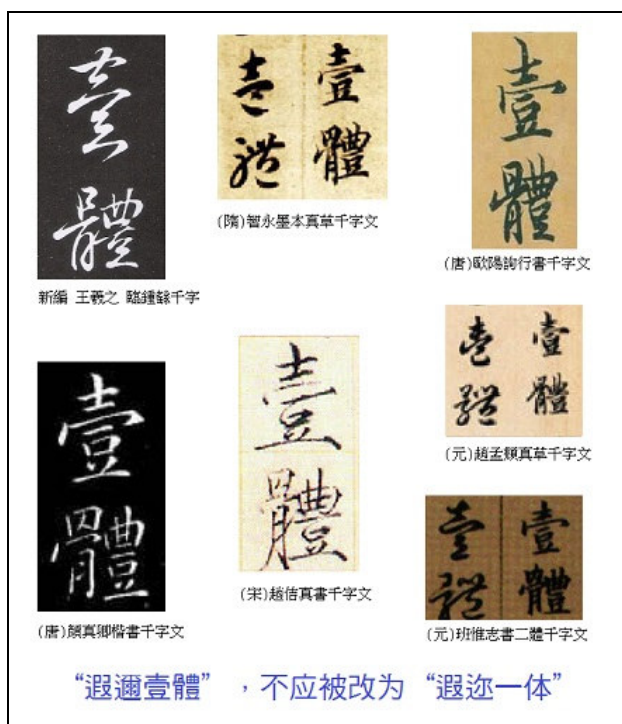 壹
體
新編 王羲之 臨鍾繇千字
壹 壹
體 體
(隋)智永墨本真草千字文
壹
體
(唐)歐陽詢行書千字文
壹
體
(唐)顏真卿楷書千字文
壹
體
(宋)趙佶真書千字文
壹 壹
體 體
(元)趙孟頫真草千字文
壹 壹
體 體
(元)班惟志書二體千字文
“遐邇壹體”，不应被改为“遐迩一体”